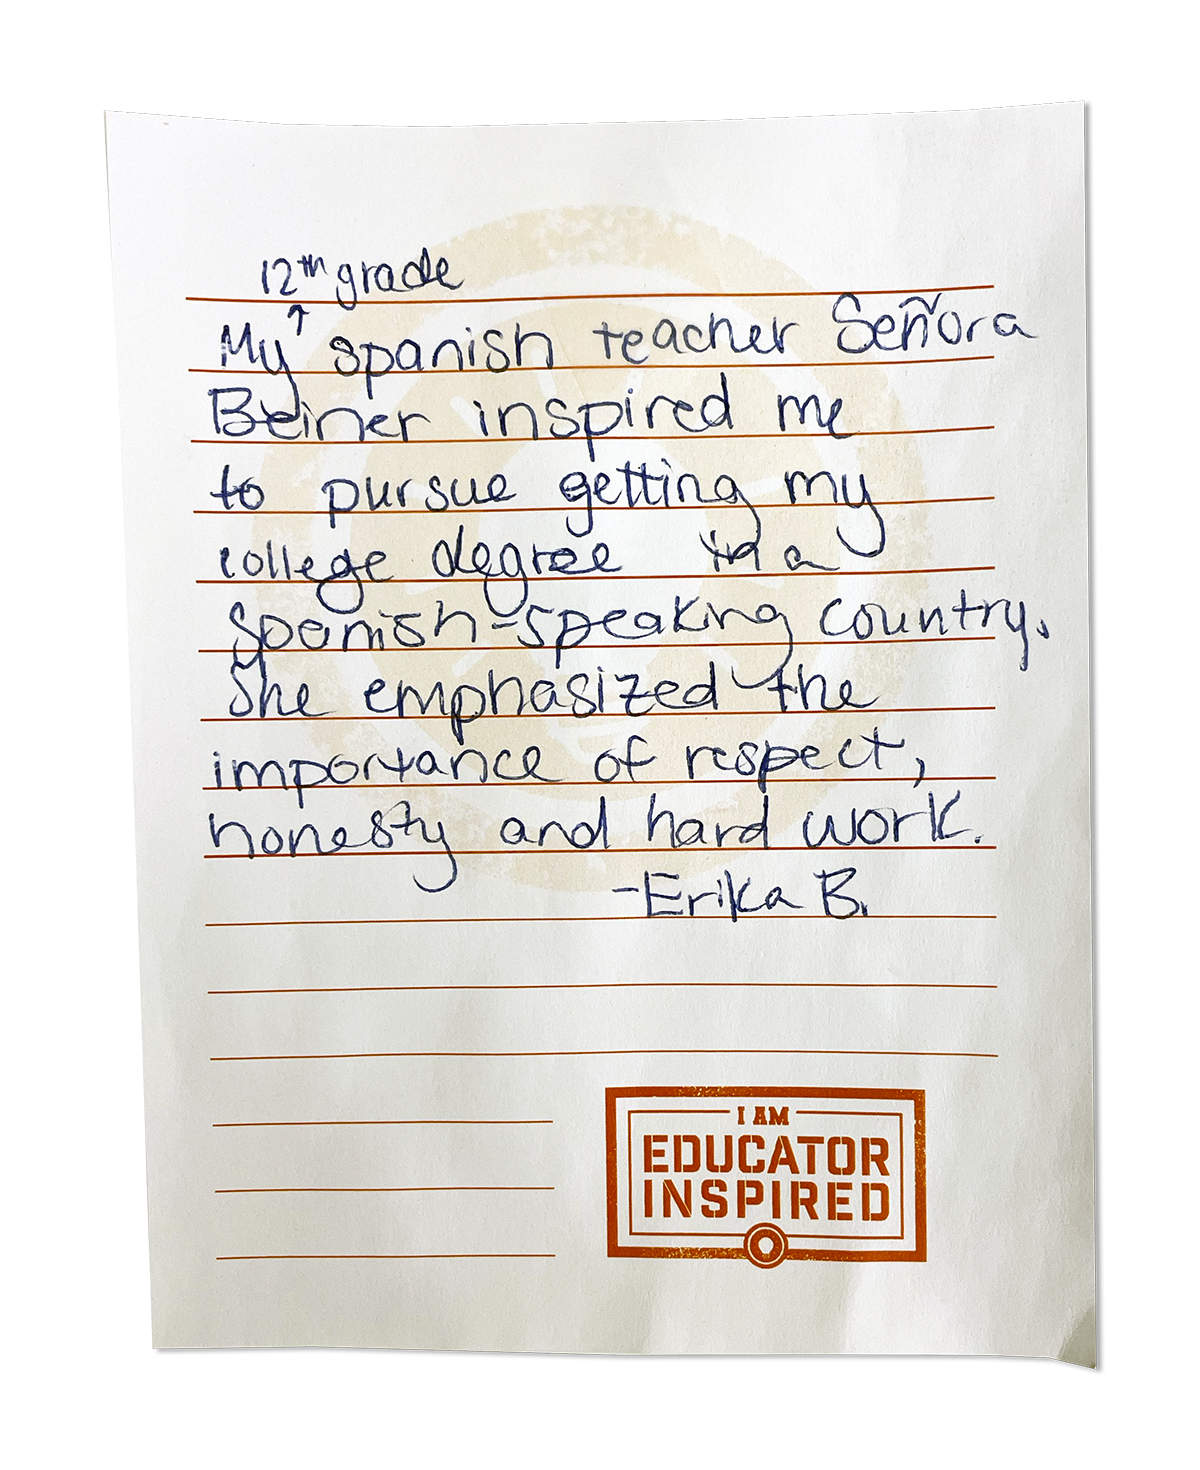 12th grade
My ↑ spanish teacher Señora
Beiner inspired me
to pursue getting my
college degree in a
Spanish-speaking country.
She emphasized the
importance of respect,
honesty and hard work.
-Erika B.
I AM
EDUCATOR
INSPIRED